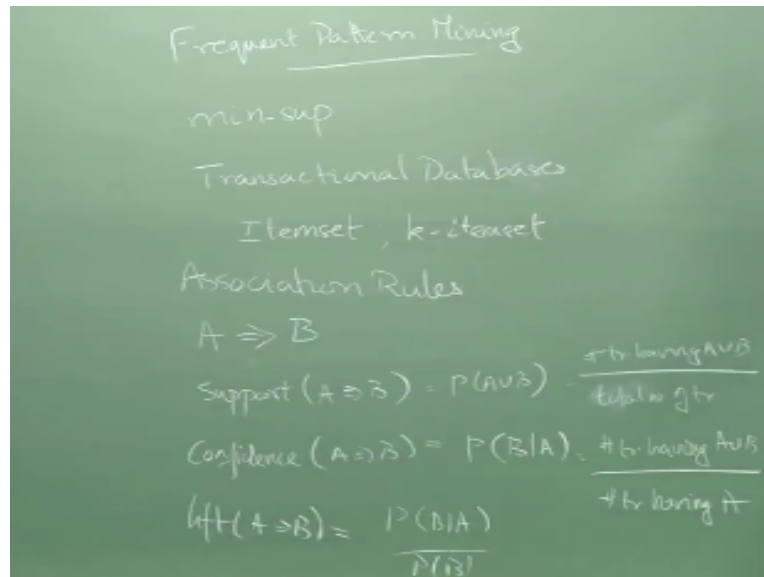 Frequent Pattern Mining
min-sup
Transactional Databases
Itemset, k-itemset
Association Rules
A ⇒ B
Support (A ⇒ B) = P(A∪B) = # tr having A∪B / total # of tr
Confidence (A ⇒ B) = P(B|A) = # tr having A∪B / # tr having A
lift (A ⇒ B) = P(B|A) / P(B)